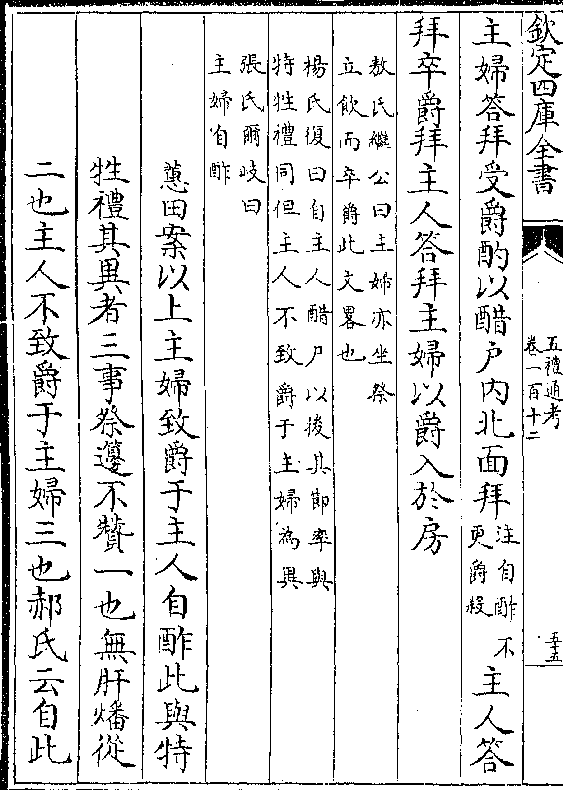 欽定四庫全書
五禮通考
卷一百十二
五十五
主婦答拜受爵酌以醋户内北面拜注自酢不更爵殺主人答
拜卒爵拜主人答拜主婦以爵入於房
敖氏繼公曰主婦亦坐祭
立飲而卒爵此文畧也
楊氏復曰自主人醋尸以後其節率與
特牲禮同但主人不致爵于主婦為異
張氏爾岐曰
主婦自酢
蕙田案以上主婦致爵于主人自酢此與特
牲禮其異者三事祭籩不贊一也無肝燔從
二也主人不致爵于主婦三也郝氏云自此